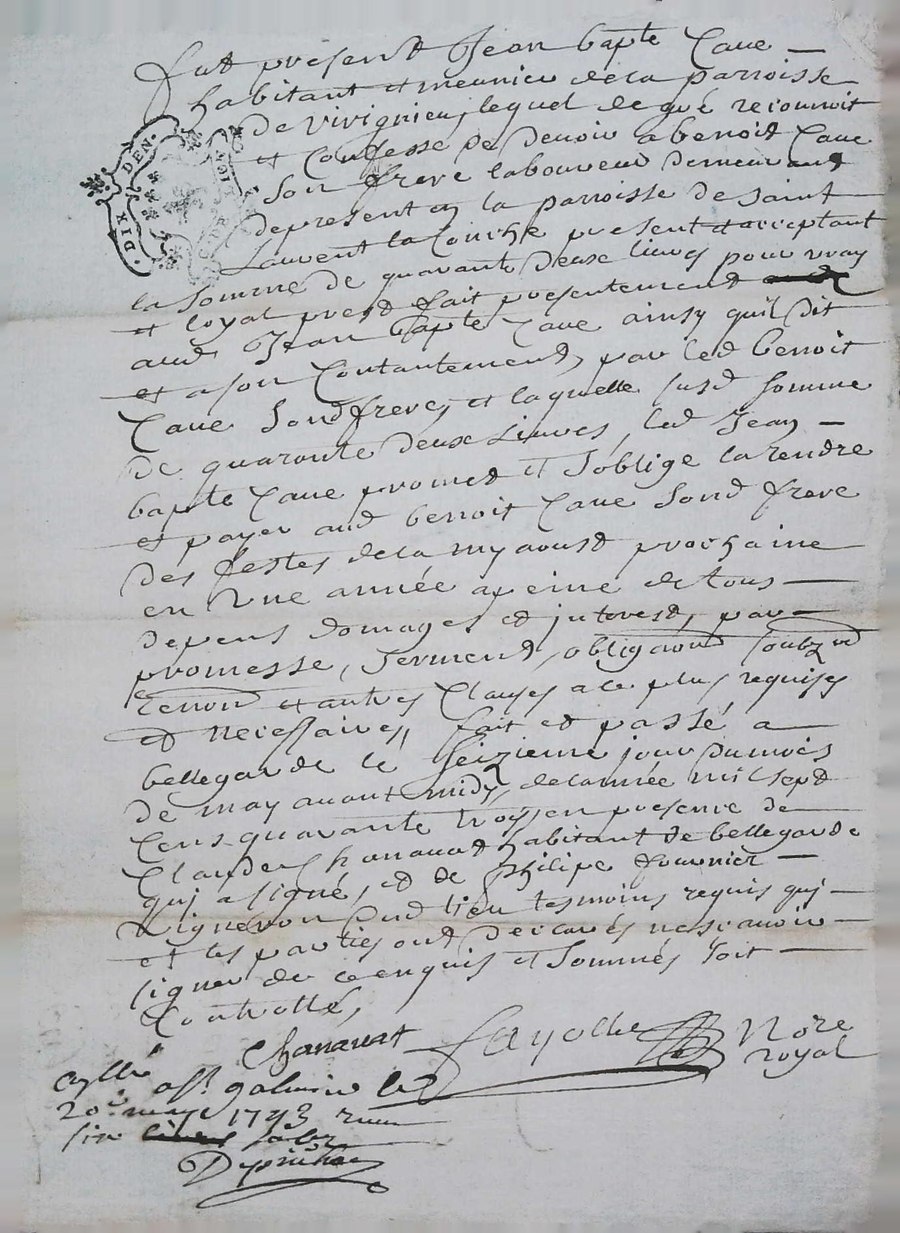 fut présent Jean bapte Cave
habitant et meunier de la parroisse
de virignieu, lequel de gré reconnoit
et Confesse de devoir a benoit Cave
son frere laboureur demeurant
depresent en la parroisse de saint
Laurent la Conche present et acceptant
la somme de quarante deux livres pour vray
et loyal prest fait presentement
aud Jean bapte Cave ainsy quil dit
et a son Contantement, par led benoit
Cave sond frere, et laquelle susd somme
de quarante deux Livres, led Jean
bapte Cave promet et s'oblige la rendre
et payer aud benoit Cave sond frere
des festes de la my aoust prochaine
en une année a peine de tous
depens domages et interest, par
promesse, serment, obligaon soubz
renon et autres Clauses a ce plus requises
et necessaires, fait et passé a
bellegarde le seizieme jour du mois
de may avant midy, de l'année mil sept
Cens quarante trois en presence de
Claude Chanavat habitant de bellegarde
qui a signé, et de philipe fournier
vigneron dud lieu tesmoins requis qui
et les parties ont declarés ne scavoir
signer de ce enquis et sommés soit
Controllé,
DIX DEN.
Chanavat fayolle Nore
royal
a st galmier le
20e may 1743
six